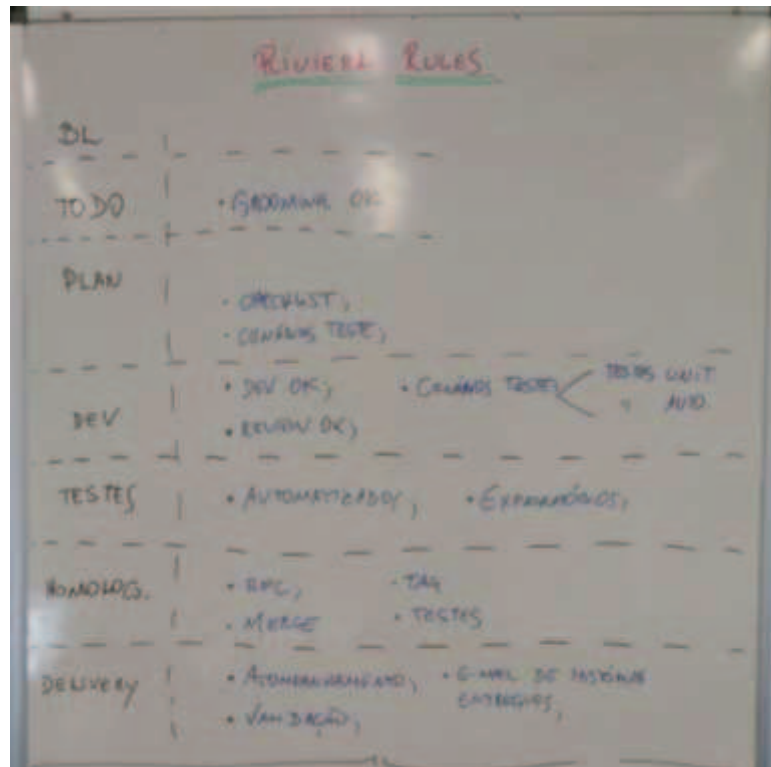 RIVIERA RULES
BL
TODO • GROOMING OK
PLAN
• CHECKLIST;
• CENÁRIOS TESTE;
DEV • DEV OK; • CENÁRIOS TESTE TESTES UNIT
• REVIEW OK; " AUTO.
TESTES • AUTOMATIZADOS; • EXPLORATÓRIOS;
HOMOLOG. • TAG
• MERGE • TESTES
DELIVERY • ACOMPANHAMENTO; • E-MAIL DE HISTÓRIAS
• VALIDAÇÃO; ENTREGUES;